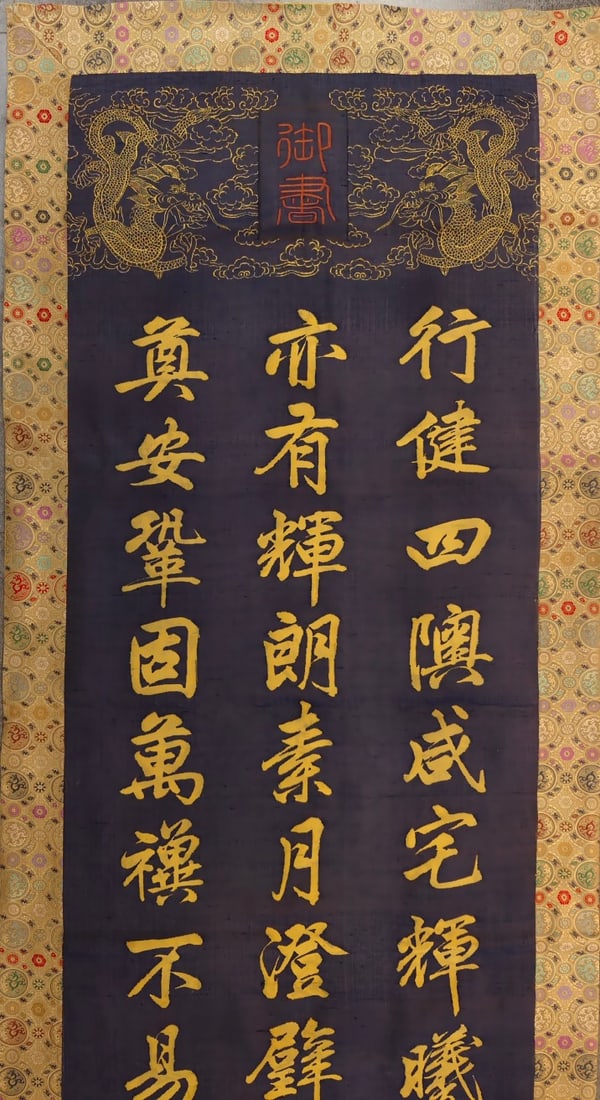 御書
行健四隩咸宅輝曦
亦有輝朗素月澄
奠安鞏固萬禩不易